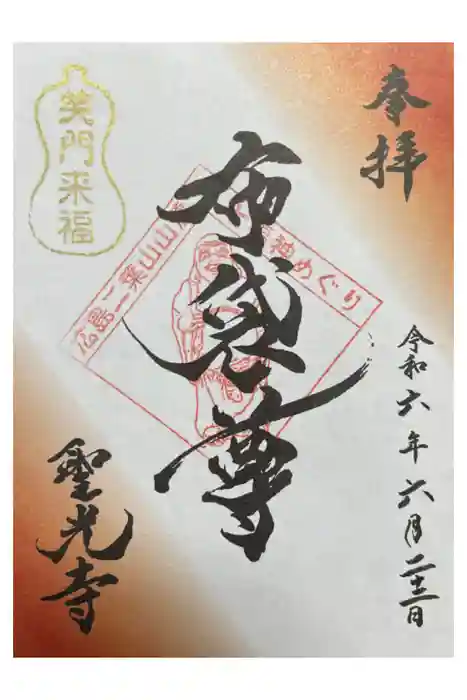 奉拝
令和六年六月二十三日
布袋尊
広島二葉山山
神めぐり
笑門来福
聖光寺